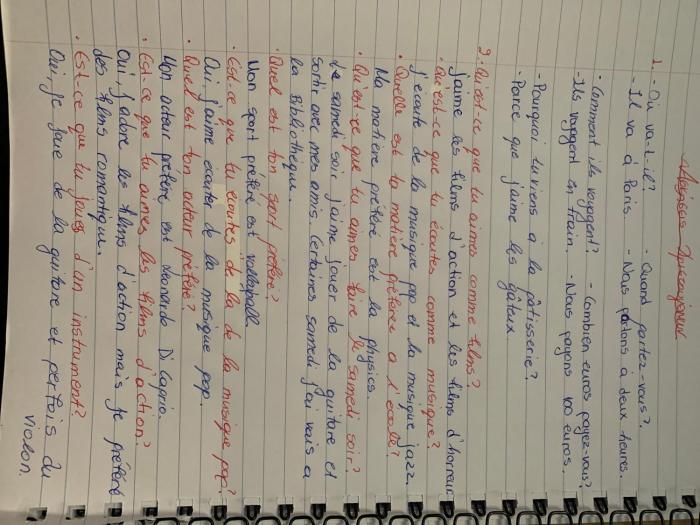 1. - Où va-t-il? - Quand partez-vous?
- Il va à Paris. - Nous partons à deux heures.
- Comment ils voyagent? - Combien euros payez-vous?
- Ils voyagent en train. - Nous payons 100 euros.
- Pourquoi tu viens à la pâtisserie?
- Parce que j'aime les gâteux
2. Qu'est-ce que tu aimes comme films?
J'aime les films d'action et les films d'horreur
• Qu'est-ce que tu écoutes comme musique?
J'écoute de la musique pop et la musique jazz.
• Quelle est ta matière préférée a l'école?
Ma matière préféré est la physics.
• Qu'est-ce que tu aimes faire le samedi soir?
Le samedi soir j'aime jouer de la guitare et
sortir avec mes amis. Certaines samedi j'ai vais a
la bibliothèque.
• Quel est ton sport préféré?
Mon sport préféré est volleyball
• Est-ce que tu écoutes de la de la musique pop?
Oui, j'aime écouter de la musique pop.
• Quel est ton acteur préféré?
Mon acteur préféré est Leonardo DiCaprio.
• Est-ce que tu aimes les films d'action?
Oui, j'adore les films d'action mais je préfère
des films romantique.
• Est-ce que tu joues d'un instrument?
Oui, je joue de la guitare et parfois du
violon.